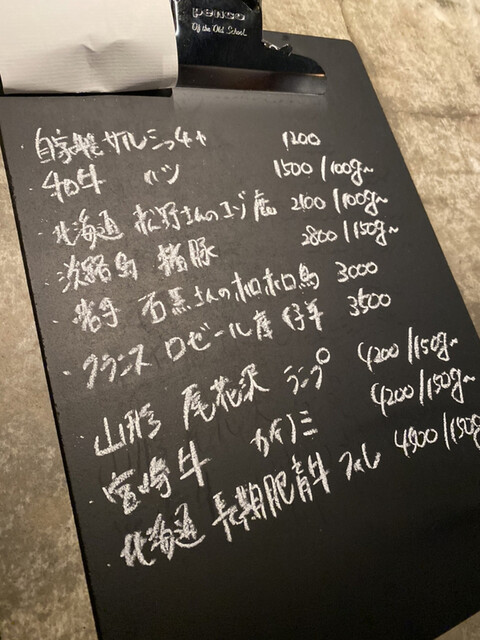 penco
Of the Old School
・自家製サルシッチャ 1200
・和牛 ハツ 1500/100g〜
・北海道 松野さんのエゾ鹿 2100/100g〜
・淡路島 猪豚 2800/150g〜
・岩手 石黒さんのホロホロ鳥 3000
・フランス ロゼール産 仔羊 3500
・山形 尾花沢 ランプ 4200/150g〜
・宮崎牛 カイノミ 4200/150g〜
・北海道 長期肥育牛 フィレ 4900/150g